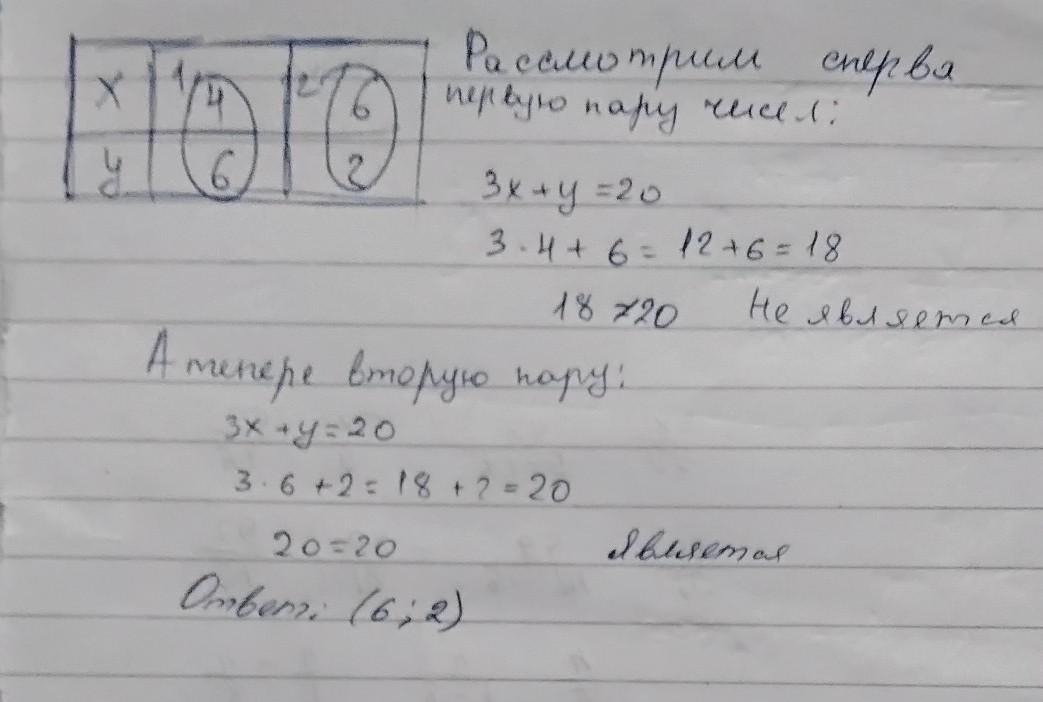 x 1 4 2 6
y 6 2
Рассмотрим сперва
первую пару чисел:
3x + y = 20
3 · 4 + 6 = 12 + 6 = 18
18 ≠ 20 Не является
А тепере вторую пару:
3x + y = 20
3 · 6 + 2 = 18 + 2 = 20
20 = 20 является
Ответ: (6 ; 2)